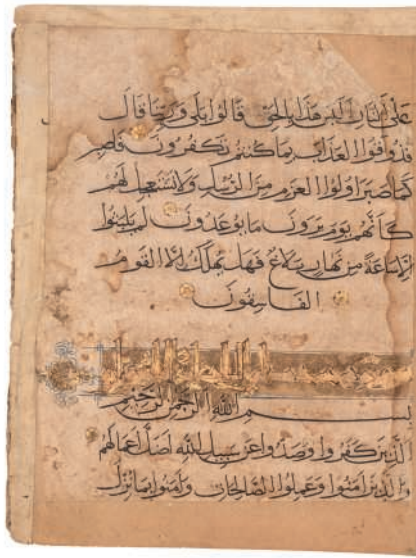 عَلَى النَّارِ أَلَيْسَ هَذَا بِالْحَقِّ قَالُوا بَلَى وَرَبِّنَا قَالَ
فَذُوقُوا الْعَذَابَ بِمَا كُنْتُمْ تَكْفُرُونَ فَاصْبِرْ
كَمَا صَبَرَ اُولُوا الْعَزْمِ مِنَ الرُّسُلِ وَلَا تَسْتَعْجِلْ لَهُمْ
كَأَنَّهُمْ يَوْمَ يَرَوْنَ مَا يُوعَدُونَ لَمْ يَلْبَثُوا
إِلَّا سَاعَةً مِنْ نَهَارٍ بَلَاغٌ فَهَلْ يُهْلَكُ اِلَّا الْقَوْمُ
الْفَاسِقُونَ
بِسْمِ اللَّهِ الرَّحْمَنِ الرَّحِيمِ
الَّذِينَ كَفَرُوا وَصَدُّوا عَنْ سَبِيلِ اللَّهِ اَضَلَّ اَعْمَالَهُمْ
وَالَّذِينَ اٰمَنُوا وَعَمِلُوا الصَّالِحَاتِ وَاٰمَنُوا بِمَا نُزِّلَ